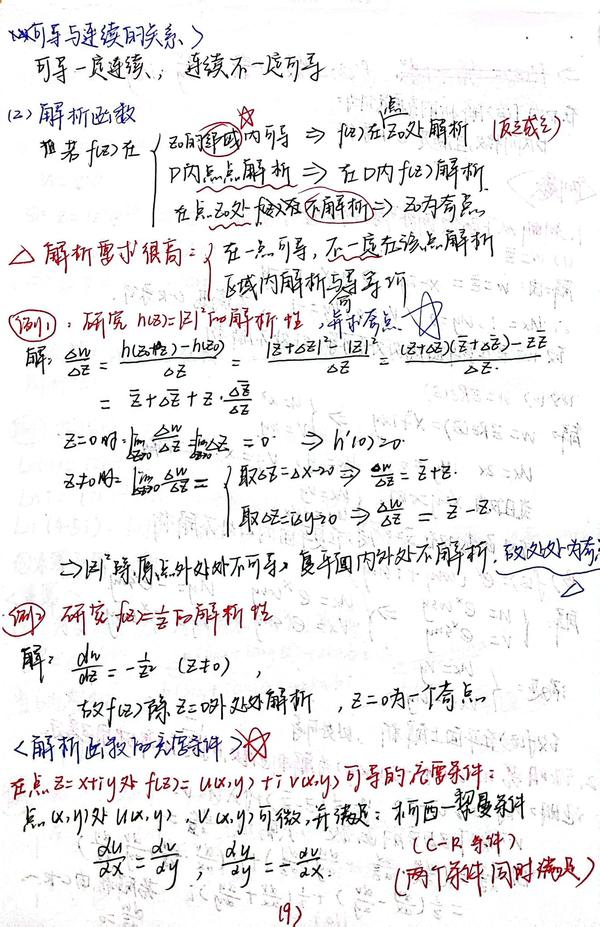 <可导与连续的关系>
可导一定连续, 连续不一定可导
(2) 解析函数
若f(z)在 { z0的邻域内可导 ⇒ f(z)在点z0处解析 (反之成立)
D内点点解析 ⇒ 在D内f(z)解析
在点z0处f(z)不解析 ⇒ z0为奇点
△ 解析要求很高: { 在一点可导, 不一定在该点解析
区域内解析与可导等价
例1: 研究 h(z)=|z|²的解析性, 并求奇点 ☆
解: Δw/Δz = (h(z0+Δz)-h(z0))/Δz = (|z+Δz|²-|z|²)/Δz = ((z+Δz)(z̄+Δz̄)-zz̄)/Δz
= z̄+Δz̄+z·Δz̄/Δz
z=0时: lim Δz→0 Δw/Δz = lim Δz→0 Δz̄ = 0 ⇒ h'(0)=0
z≠0时: lim Δz→0 Δw/Δz = { 取Δz=Δx→0 ⇒ Δw/Δz = z̄+z.
取Δz=iΔy→0 ⇒ Δw/Δz = z̄-z
⇒ |z|²除原点外处处不可导, 复平面内处处不解析. 故处处为奇
例2 研究f(z)=1/z的解析性
解: dw/dz = -1/z² (z≠0),
故f(z)除z=0外处处解析, z=0为一个奇点
<解析函数的充要条件> ☆
在点z=x+iy处f(z)=u(x,y)+iv(x,y)可导的充要条件:
点(x,y)处u(x,y), v(x,y)可微, 并满足: 柯西-黎曼条件
(C-R条件)
∂u/∂x = ∂v/∂y, ∂u/∂y = -∂v/∂x. (两个条件同时满足)
(9)